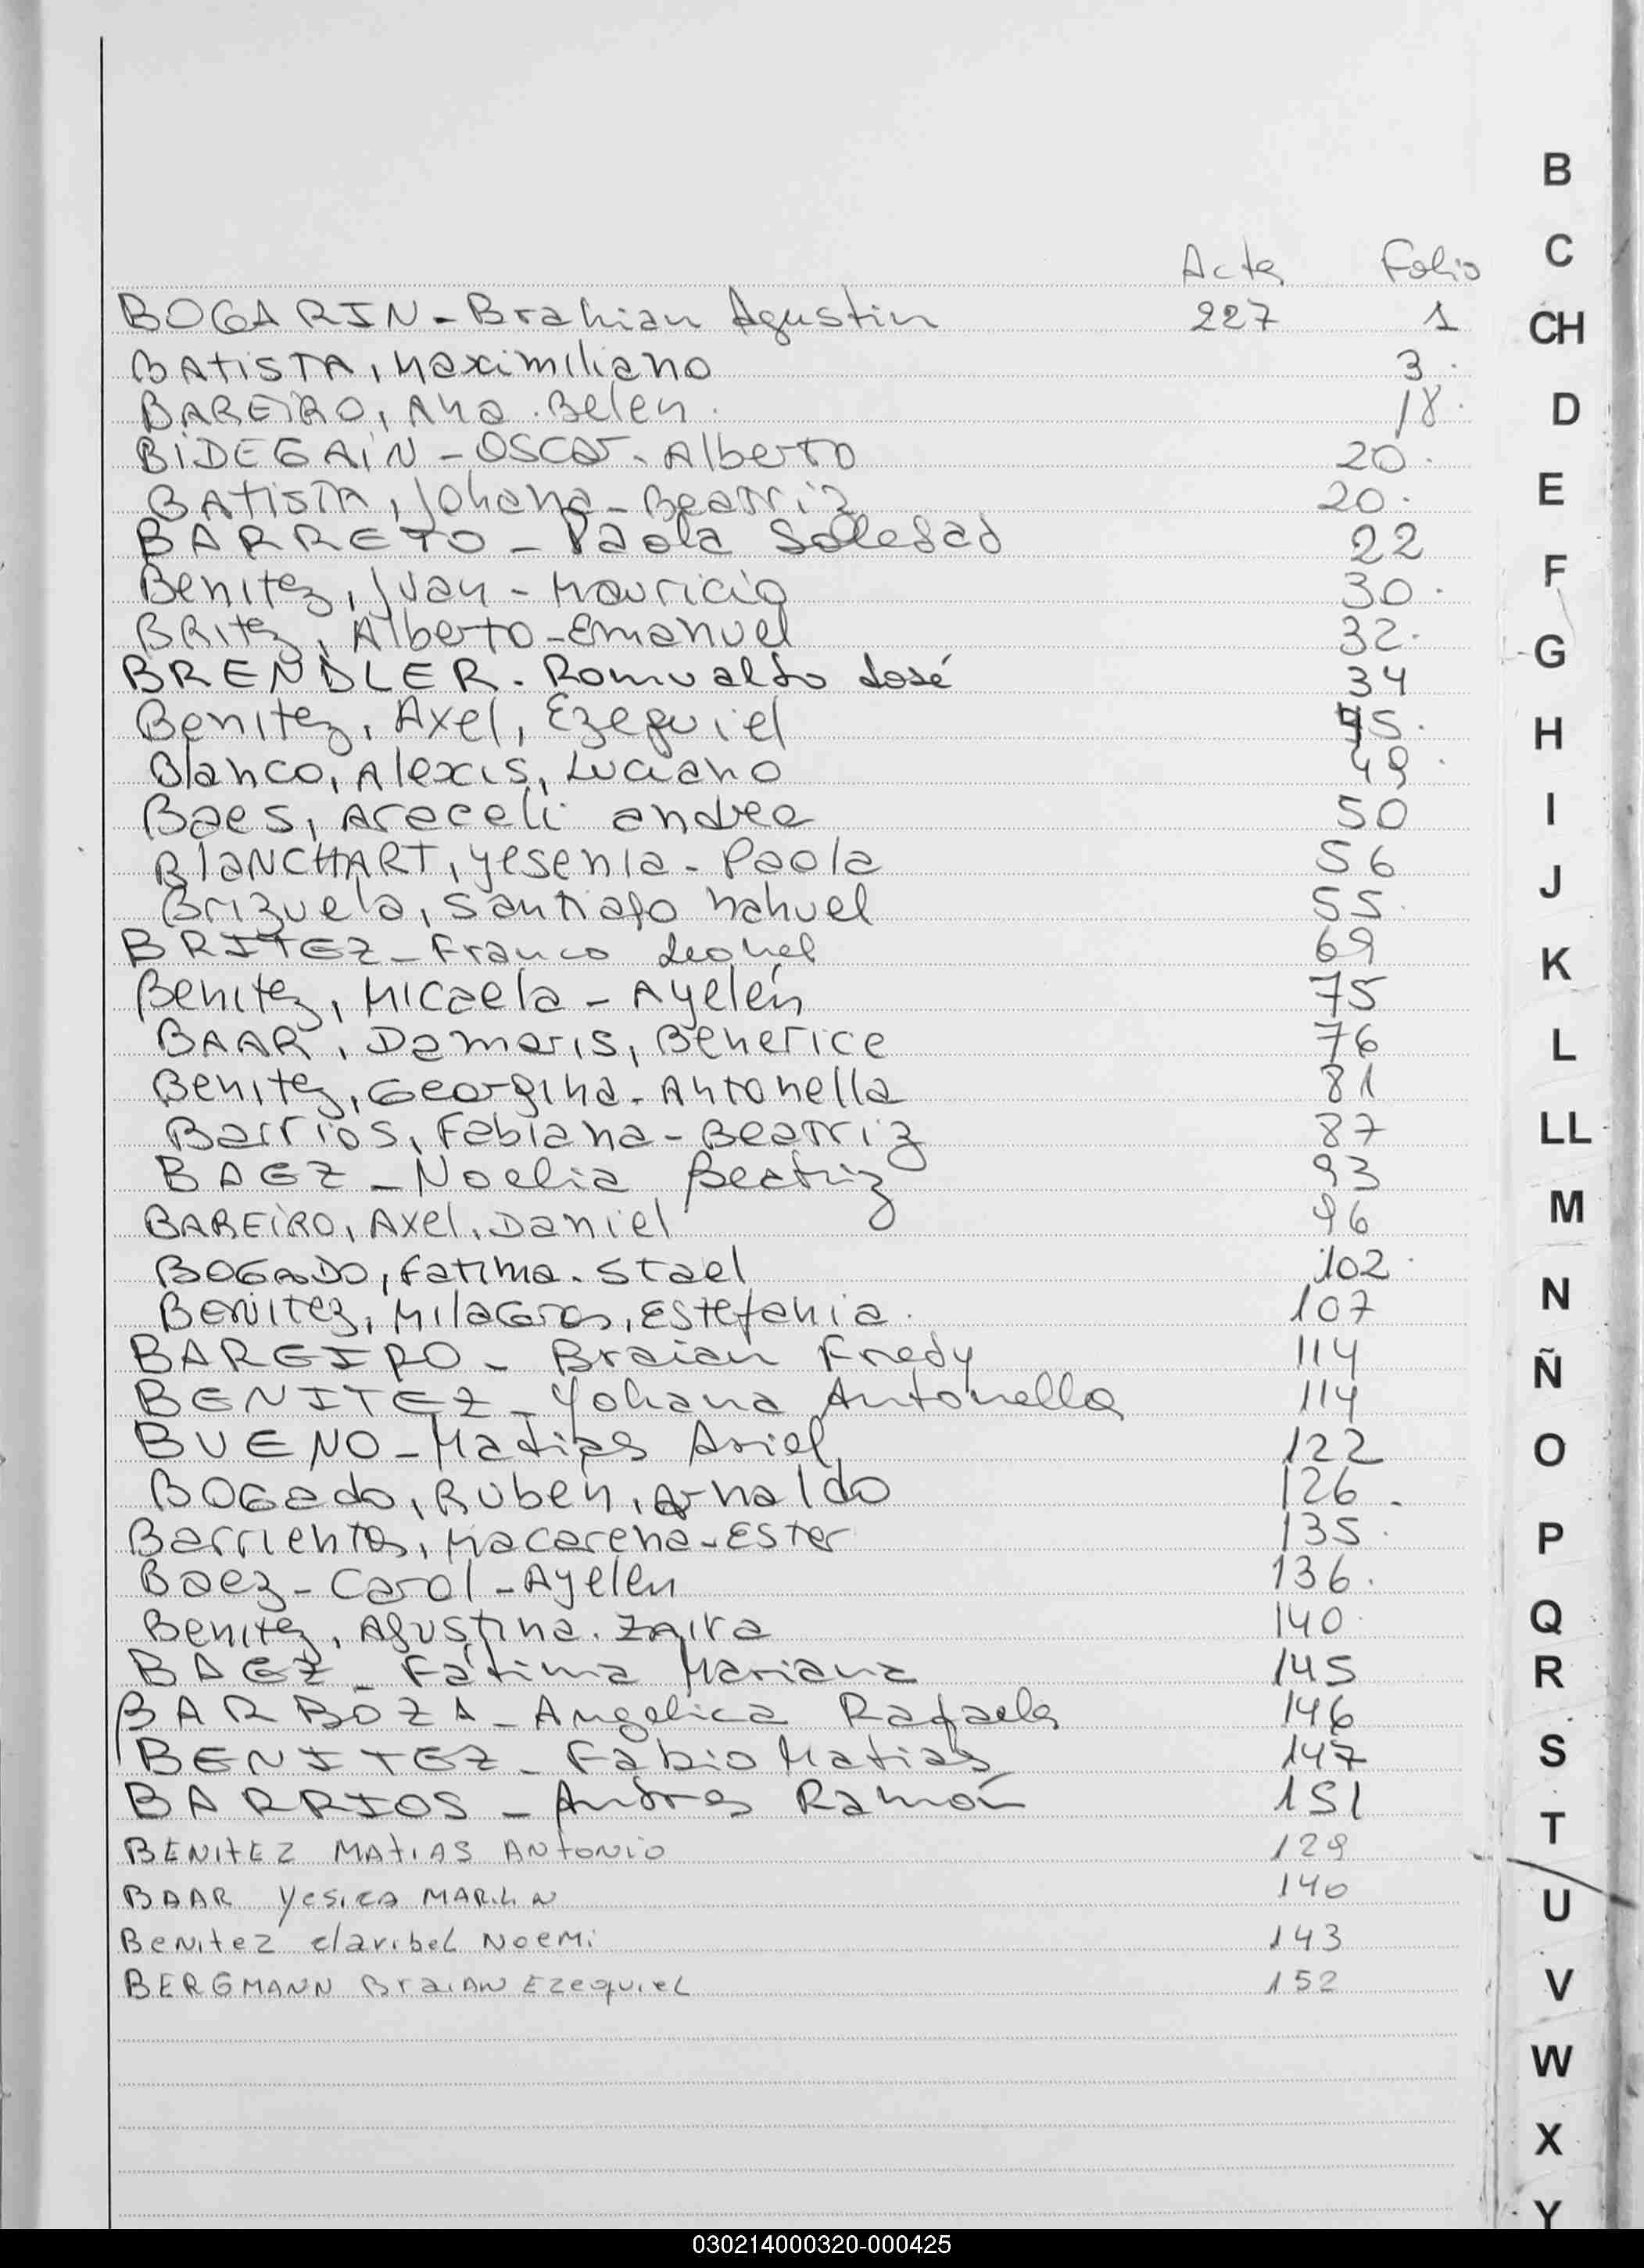 Acta Folio
BOGARIN - Brahian Agustin 227 1
BATISTA, Maximiliano 3.
BAREIRO, Ana Belen. 18.
BIDEGAIN - Oscar. Alberto 20.
BATISTA, Johana - Beatriz 20.
BARRETO - Paola Soledad 22
Benitez, Ivan - Mauricio 30.
BRitez, Alberto - Emanuel 32.
BRENDLER. Romualdo José 34
Benitez, Axel, Ezequiel 45.
Blanco, Alexis, Luciano 49.
Baes, Araceli andrea 50
BlANCHART, yesenia - Paola 56
Brizuela, Santiago nahuel 55.
BRITEZ - Franco Leonel 69
Benitez, Micaela - Ayelén 75
BAAR, Damaris, Benerice 76
Benitez, Georgina. Antonella 81
Barrios, Fabiana - Beatriz 87
BAEZ - Noelia Beatriz 93
BAREiRO, Axel, Daniel 96
BOGADO, Fatima. Stael 102.
BENITEZ, MilaGros, Estefania. 107
BAREIRO - Braian Fredy 114
BENITEZ - Yohana Antonella 114
BUENO - Matias Ariel 122
BOGado, Ruben, Arnaldo 126.
Barrientos, Macarena - Ester 135.
Baez - Carol - Ayelen 136.
Benitez, Agustina. Zaira 140.
BAEZ - Fátima Mariana 145
BARBOZA - Angelica Rafaela 146
BENITEZ - Fabio Matias 147
BARRIOS - Andres Ramón 151
BENItEZ MAtIAS ANtONiO 129
BAAR Yesica MARILIN 140
BeNitez claribel NOEMi 143
BERGMANN BraiAN Ezequiel 152
B
C
CH
D
E
F
G
H
I
J
K
L
LL
M
N
Ñ
O
P
Q
R
S
T
U
V
W
X
Y
030214000320-000425